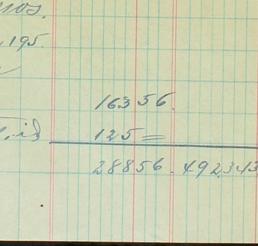 mos.
195.
16356.
is 125=
28856.492343